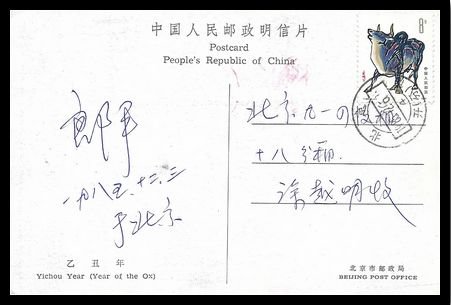 中国人民邮政明信片
Postcard
People's Republic of China
8分
一九八五、十二、三
于北京
乙丑年
Yichou Year (Year of the Ox)
北京 九一四
十八分箱
徐 明收
北京市邮政局
BEIJING POST OFFICE